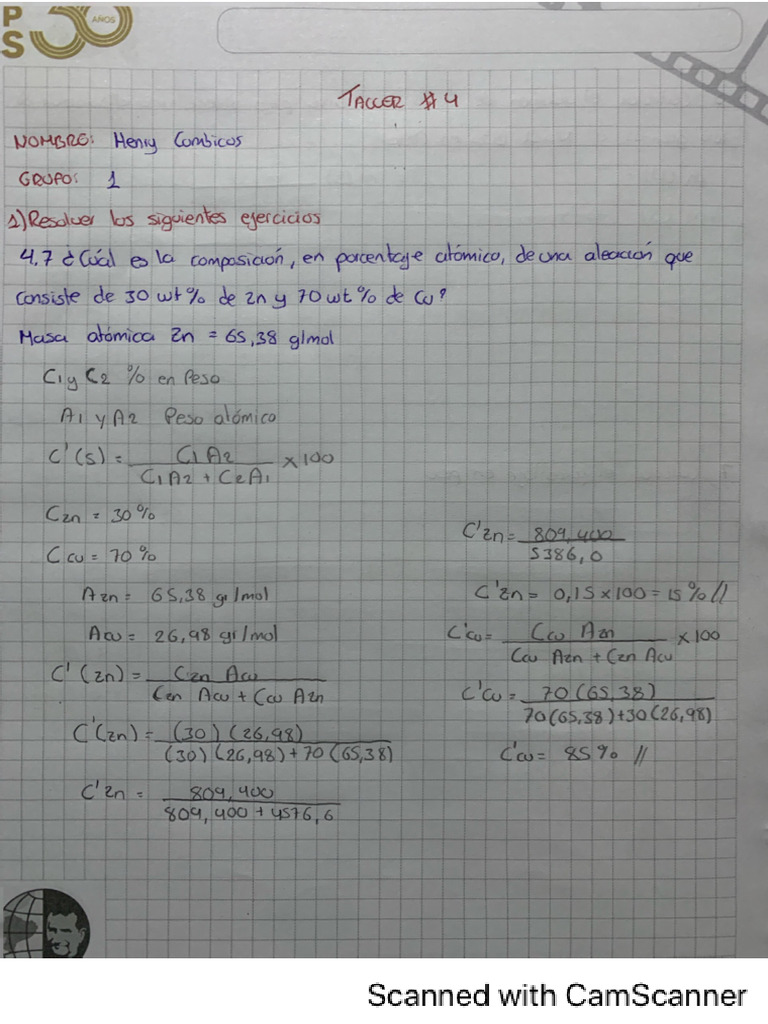 PS
50 AÑOS
TALLER # 4
NOMBRE: Henry Cumbicos
GRUPO: 1
1) Resolver los siguientes ejercicios
4.7 ¿Cúal es la composición, en porcentaje atómico, de una aleación que
consiste de 30 wt% de Zn y 70 wt% de Cu?
Masa atómica Zn = 65,38 g/mol
C1 y C2 % en Peso
A1 y A2 Peso atómico
C'(s) = C1 A2 / C1 A2 + C2 A1 x 100
Czn = 30%
Ccu = 70%
Azn = 65,38 gr/mol
Acu = 26,98 gr/mol
C'(zn) = Czn Acu / Czn Acu + Ccu Azn
C'(zn) = (30) (26,98) / (30) (26,98) + 70 (65,38)
C'zn = 809,400 / 809,400 + 4576,6
C'zn = 809,400 / 5386,0
C'zn = 0,15 x 100 = 15% //
C'cu = Ccu Azn / Ccu Azn + Czn Acu x 100
C'cu = 70 (65,38) / 70 (65,38) + 30 (26,98)
C'cu = 85% //
Scanned with CamScanner